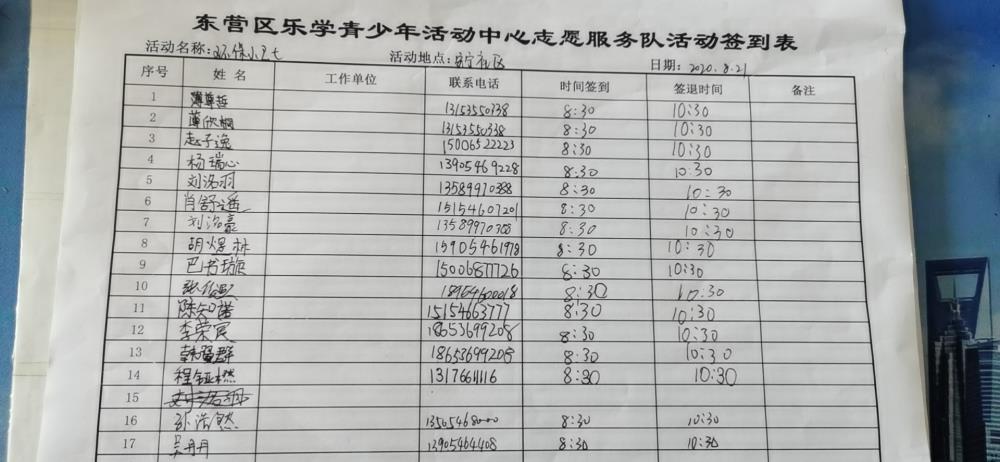 东营区乐学青少年活动中心志愿服务队活动签到表
活动名称:环保小卫士 活动地点:安宁社区 日期:2020.8.21
序号 姓名 工作单位 联系电话 时间签到 签退时间 备注
1 13153550338 8:30 10:30
2 薄欣桐 13153550338 8:30 10:30
3 赵子逸 15006522223 8:30 10:30
4 杨瑞心 13905469228 8:30 10:30
5 刘洺羽 13589970388 8:30 10:30
6 肖舒遥 15154607201 8:30 10:30
7 刘洺豪 13589970388 8:30 10:30
8 胡煜林 15905461978 8:30 10:30
9 巴书璇 15006877726 8:30 10:30
10 18954600018 8:30 10:30
11 陈知诺 15154663777 8:30 10:30
12 李荣宸 18653699208 8:30 10:30
13 韩翼群 18658699208 8:30 10:30
14 程钰燃 13176611116 8:30 10:30
15
16 孙浩然 13505468000 8:30 10:30
17 吴丹丹 13905464408 8:30 10:30